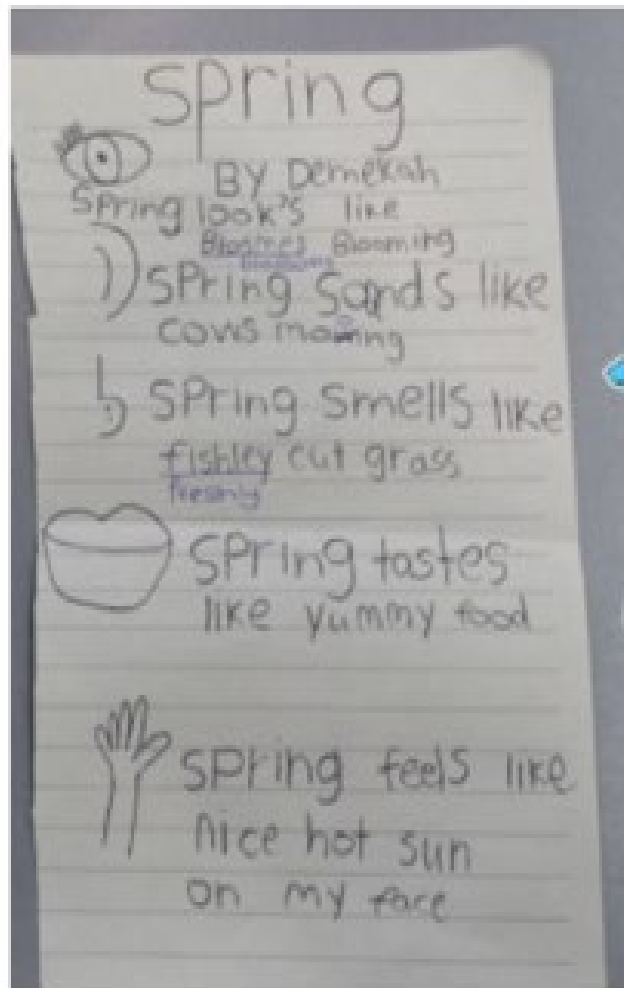 Spring
BY Demekah
Spring look's like
Bloomes Blooming
Spring Sands like
cows mooing
Spring smells like
fishley cut grass
freshly
Spring tastes
like yummy food
Spring feels like
nice hot sun
on my face